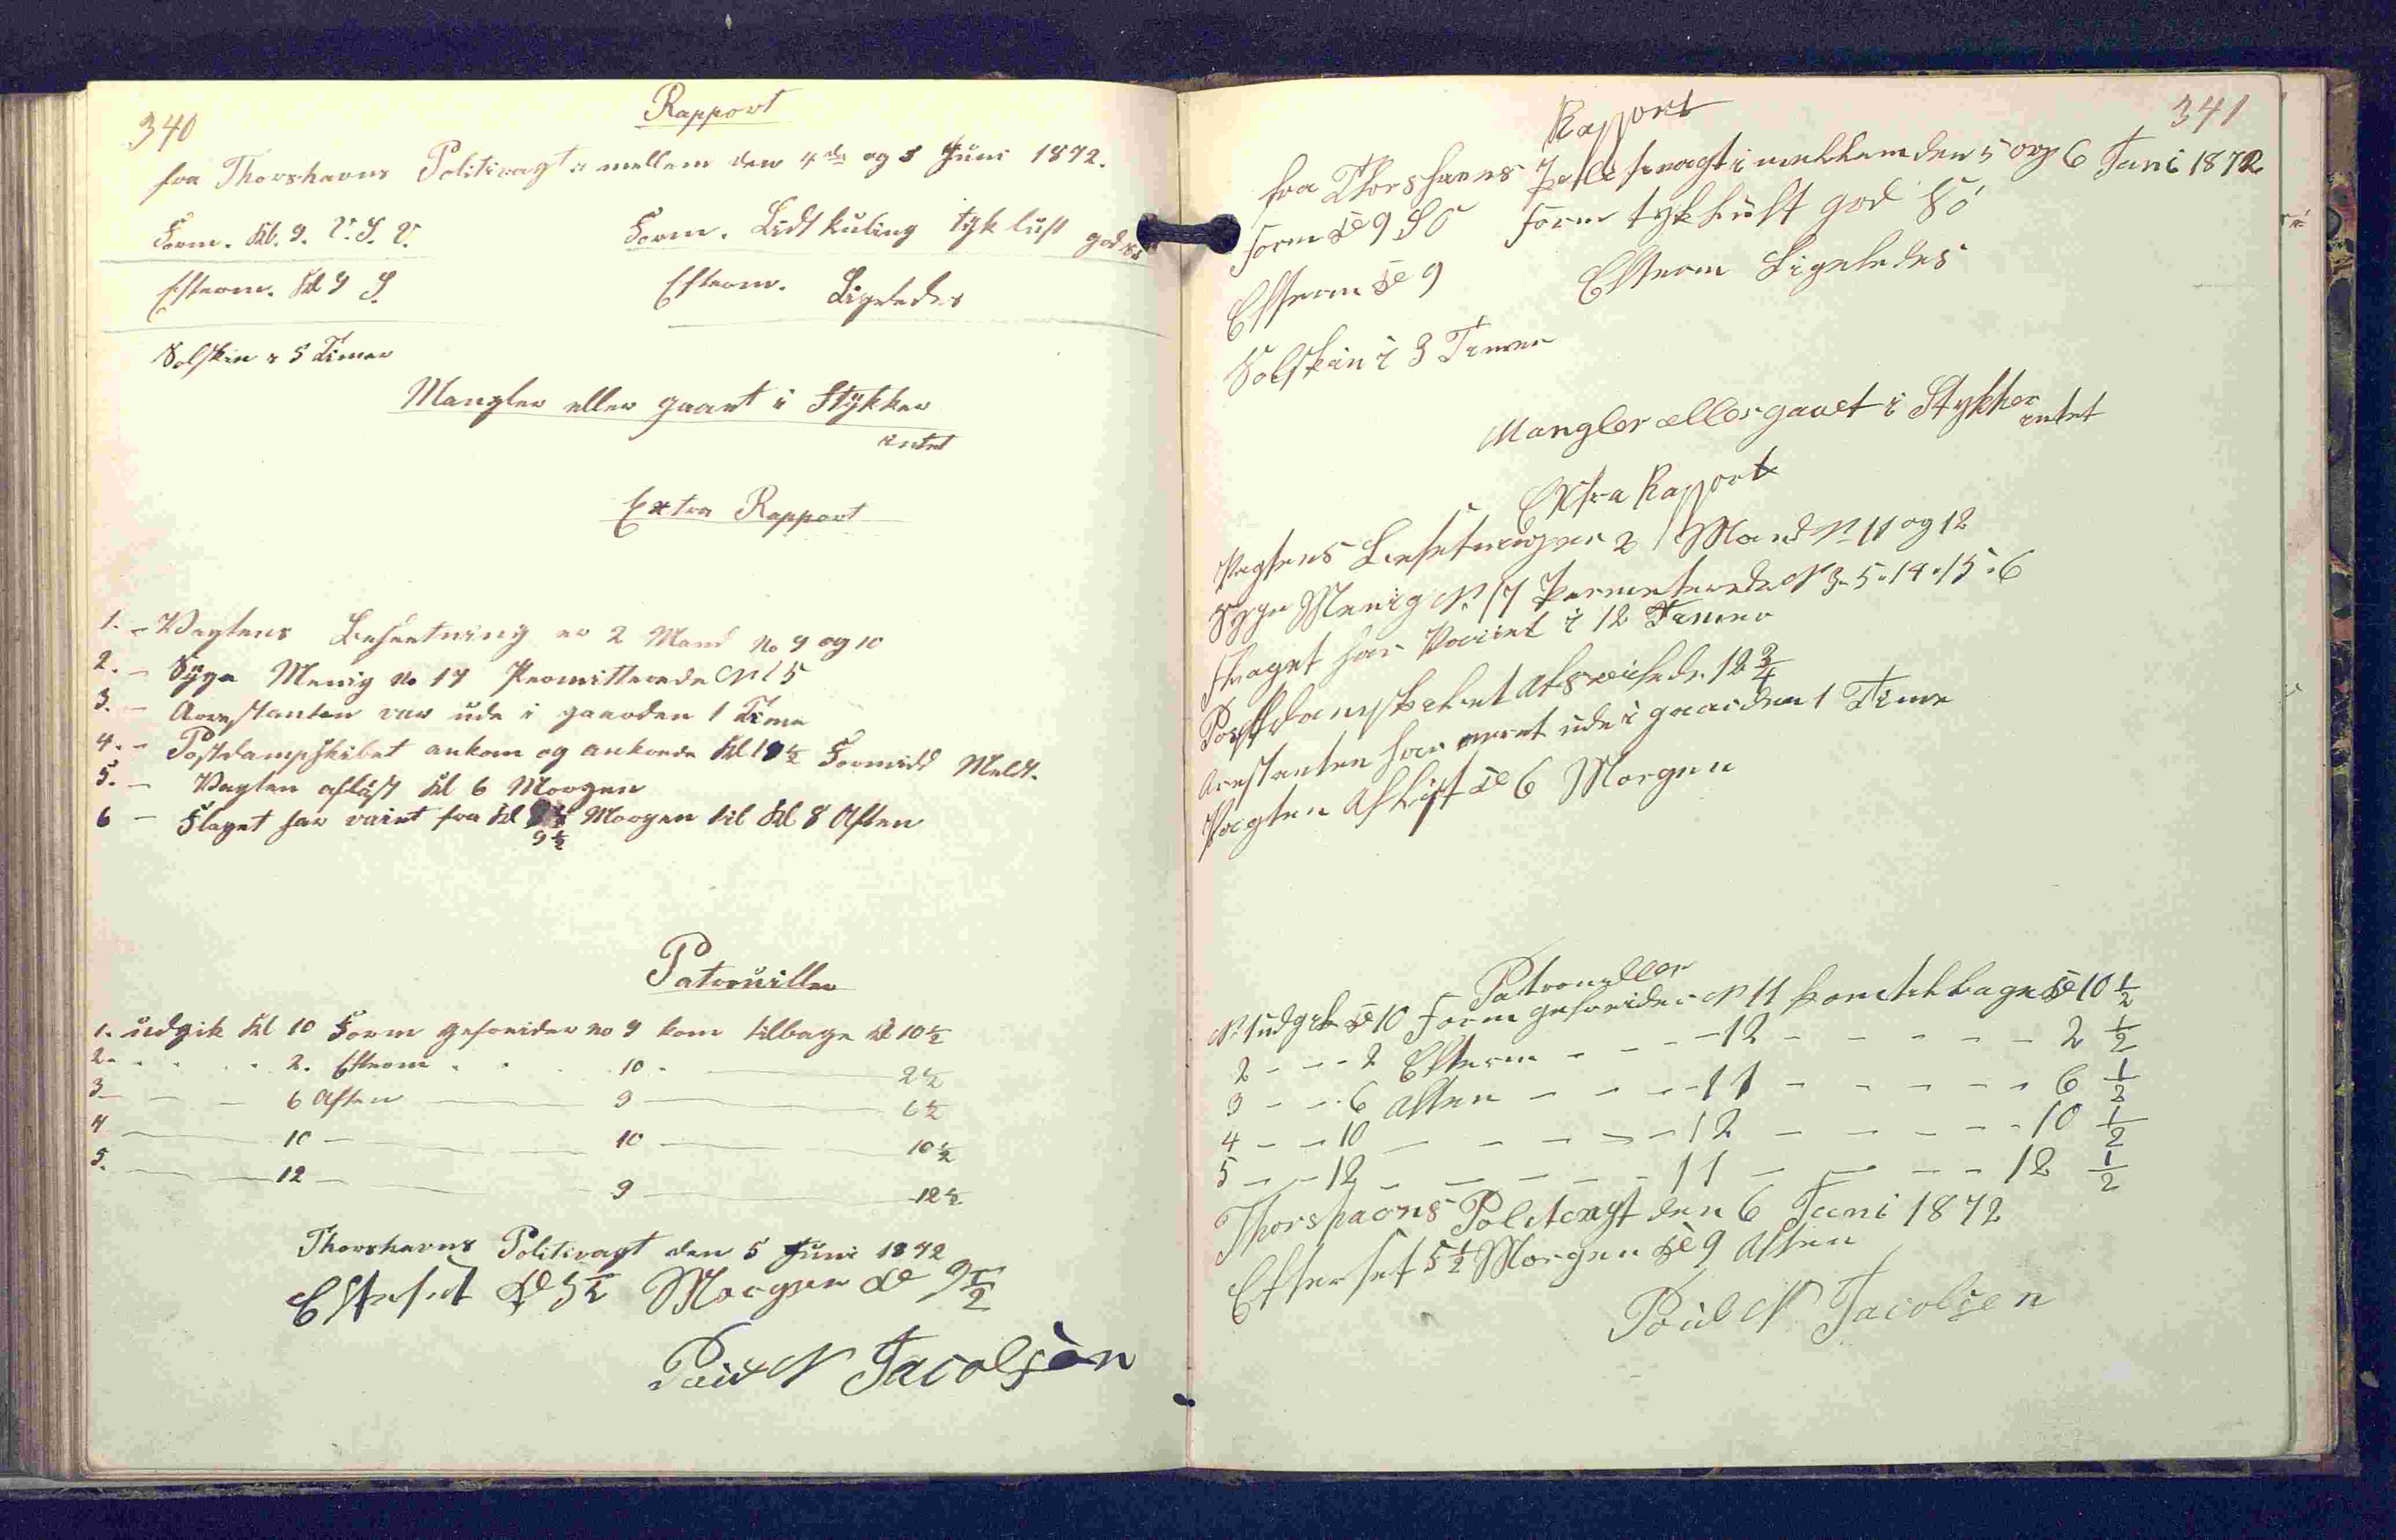 340
Rapport
fra Thorshavns Politivagt i mellem den 4de og 5 Juni 1872.
Form. Kl. 9. V. S. V. Form. Lidt kuling tyk luft god Sö
Efterm. Kl 9 S. Efterm. Ligeledes
Solskin i 5 Timer
Mangler eller gaaet i Stykker
intet
Extra Rapport
1. - Vagtens Besætning er 2 Mand No 9 og 10
2. - Syge Menig No 17 Permitterede N 15
3. - Arrestanten var ude i gaarden 1 Time
4. - Postdampskibet ankom og ankrede Kl 10½ Formidd Meldt.
5. - Vagten aflöst Kl 6 Morgen
6 - Flaget har vaiet fra Kl Morgen til Kl 8 Aften
9½
Patrouiller
1. udgik Kl 10 Form gefreider No 9 kom tilbage Kl 10½
2. . . . . 2. Efterm . . . 10 . 2½
3 — — — 6 Aften — 9 — 6½
4 — 10 — — 10 — 10½
5. — 12 — — 9 — 12½
Thorshavns Politivagt den 5 Juni 1872
Efterset Kl 5½ Morgen Kl 9½
Poul N Jacobsen
341
Rapport
fra Thorshavns Politivagt i mellem den 5 og 6 Juni 1872
Form Kl 9 SO Form tyk luft god Sö
Efterm Kl 9 Efterm Ligeledes
Solskin i 3 Timer
Mangler eller gaaet i Stykker
intet
Extra Rapport
Vagtens Besetning er 2 Mand N 11 og 12
Syge Menig N. 17 Permeterede N 3 - 5 - 14 - 15 - 6
Flaget har Vaiiet i 12 Timer
Postdampskibet Afreisede 12¾
Arestanten har veret ude i gaarden 1 Time
Vagten Aflöst Kl 6 Morgen
Patrouiller
N 1 udgik Kl 10 Form gefreider N 11 kom tilbage Kl 10½
2 - - - 2 Efterm - - - - 12 - - - - - 2½
3 - - - 6 Aften - - - - 11 - - - - - 6½
4 - - 10 - - - - - 12 - - - - - 10½
5 - - 12 - - - - - 11 - - - - 12½
Thorshavns Politivagt den 6 Juni 1872
Efterset 5½ Morgen Kl 9 Aften
Poul N Jacobsen